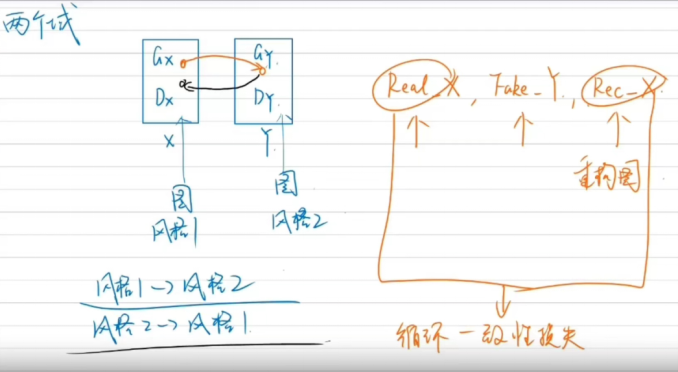 两个域
Gx
Gy.
Dx
Dy.
X
Y.
图
风格1
图
风格2
风格1→风格2
风格2→风格1
Real_X, Fake_Y, Rec_X
重构图
循环一致性损失